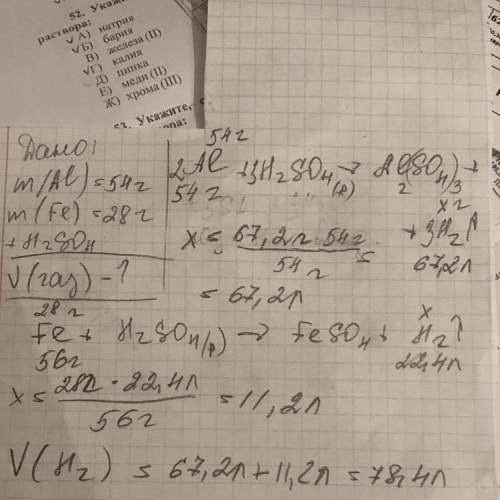 52. Укажи
раствора:
А) натрия
Б) бария
В) железа (II)
Г) калия
Д) цинка
Е) меди (II)
Ж) хрома (III)
53. Укажите,
Дано:
m(Al) = 54г
m(Fe) = 28г
+ H2SO4
V(газ) - ?
54г
2Al + 3H2SO4(р) → Al2(SO4)3 +
54г
x г
+ 3H2↑
67,2л
x = 67,2л · 54г / 54г =
= 67,2л
28г
x
Fe + H2SO4(р) → FeSO4 + H2↑
56г
22,4л
x = 28г · 22,4л / 56г = 11,2л
V(H2) = 67,2л + 11,2л = 78,4л